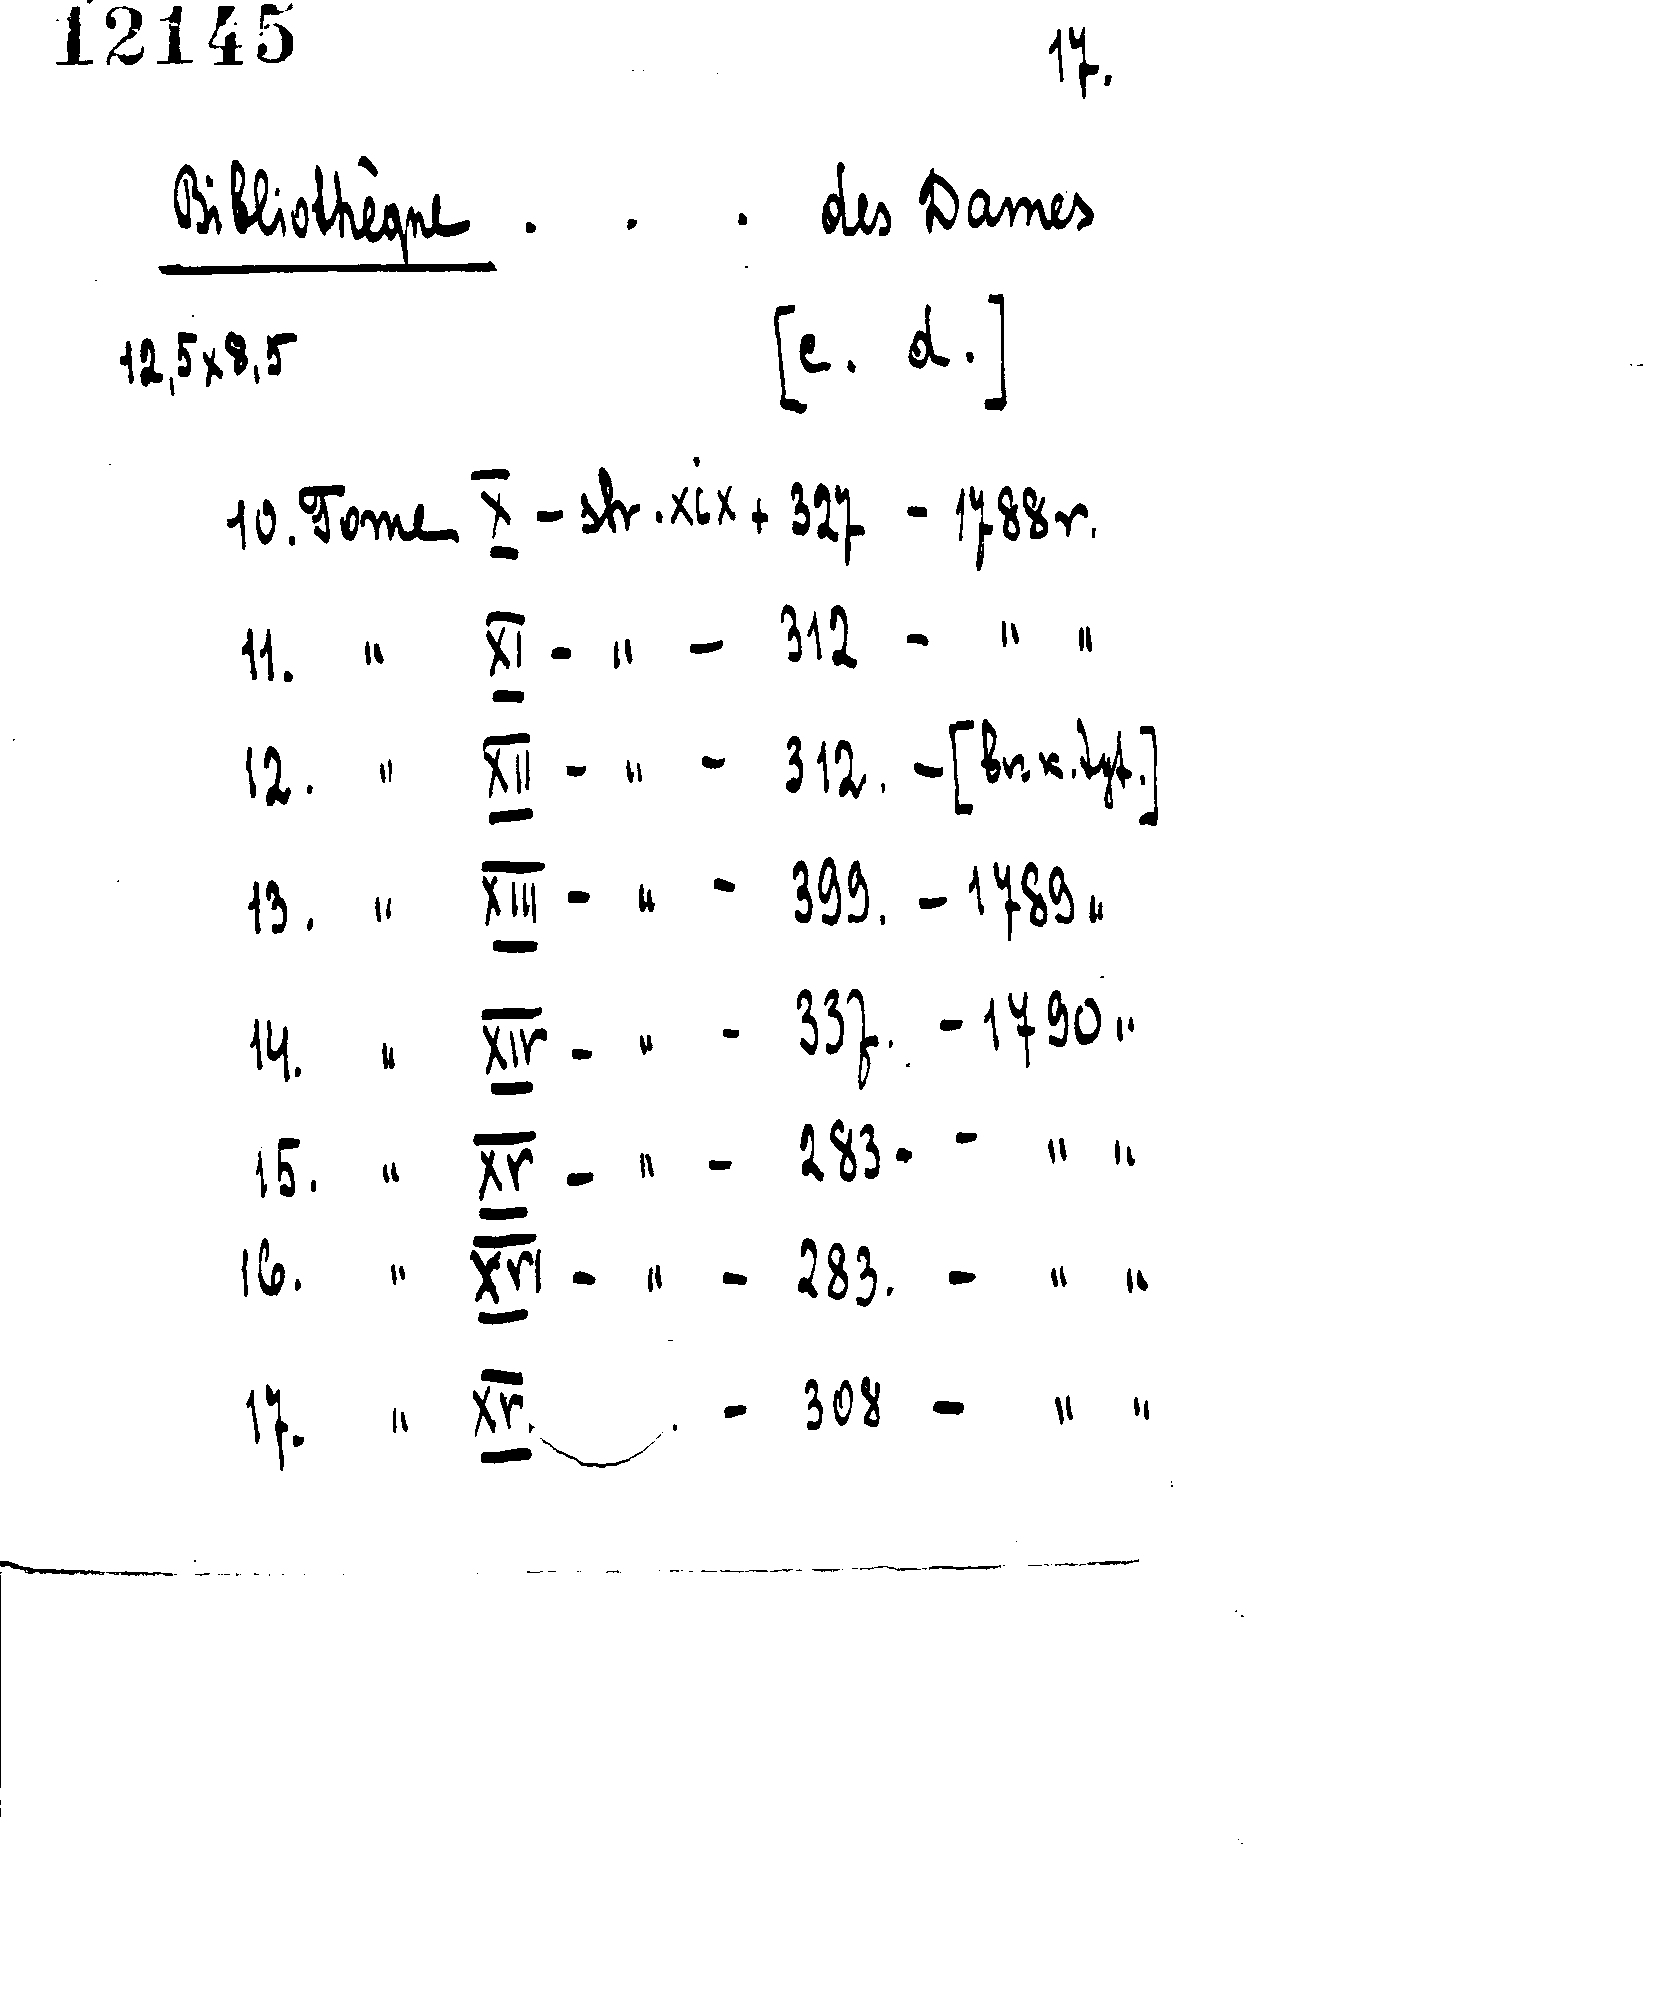 12145
17.
Bibliothèque . . . des Dames
12,5x8,5 [c. d.]
10. Tome X - str. xix + 327 - 1788 r.
11. " XI - " - 312 - " "
12. " XII - " - 312. - [br. k. tyt.]
13. " XIII - " - 399. - 1789 "
14. " XIV - " - 337. - 1790 "
15. " XV - " - 283. - " "
16. " XVI - " - 283. - " "
17. " XV. . - 308 - " "